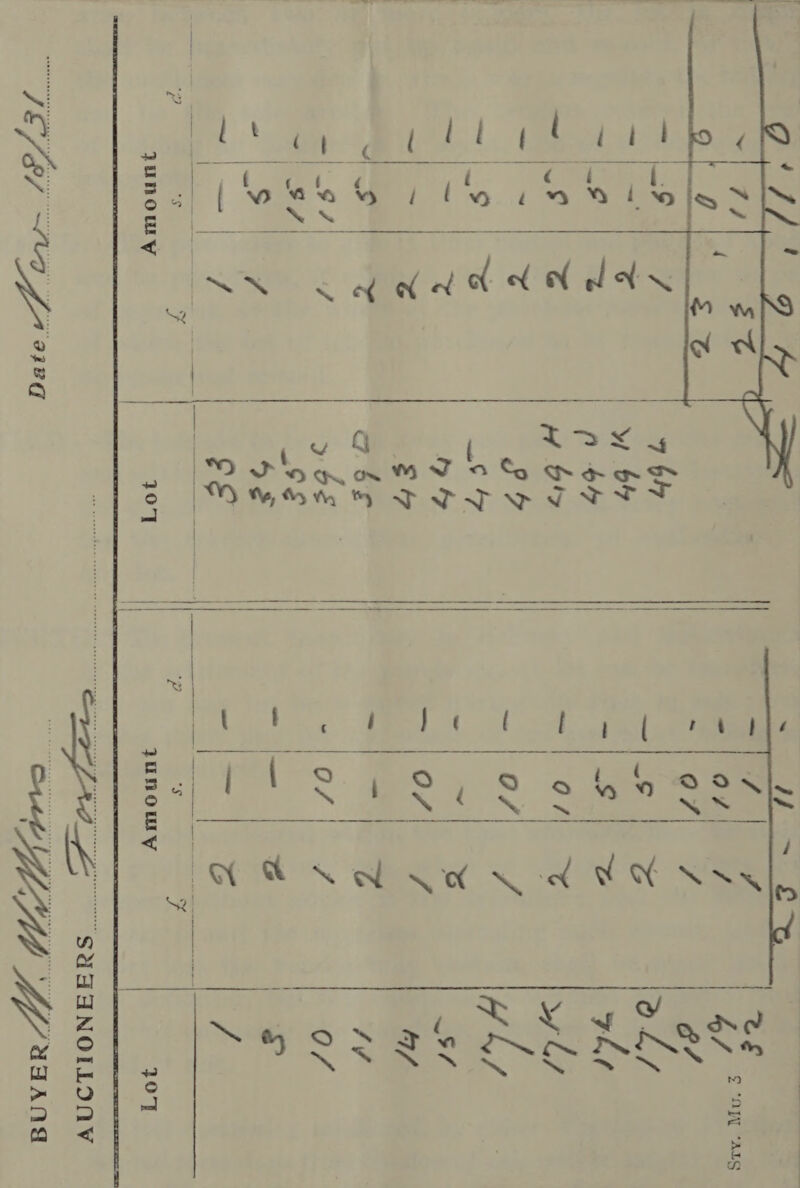 BUYER W. Wilkins Date Nov 18/31
AUCTIONEERS Foster
Lot Amount Lot Amount
£ s. d. £ s. d.
1 2 - - 33 1 - -
3 2 - - 34 1 5 -
10 1 10 - 35 15 -
11 2 - - 39C 1 15 -
14 1 10 - 39D 2 5 -
15 2 - - 43 2 - -
17H 1 10 - 44 2 - -
17K 2 10 - 45 2 5 -
17L 2 5 - 48 2 - -
17Q 2 5 - 49H 2 5 -
18 1 10 - 49J 2 5 -
19 1 10 - 49K 2 - -
32 1 1 - 49L 1 5 -
23 - 11 - 23 , 0 , 0
23 11 -
46 . 11 . 0
STY. MU. 3